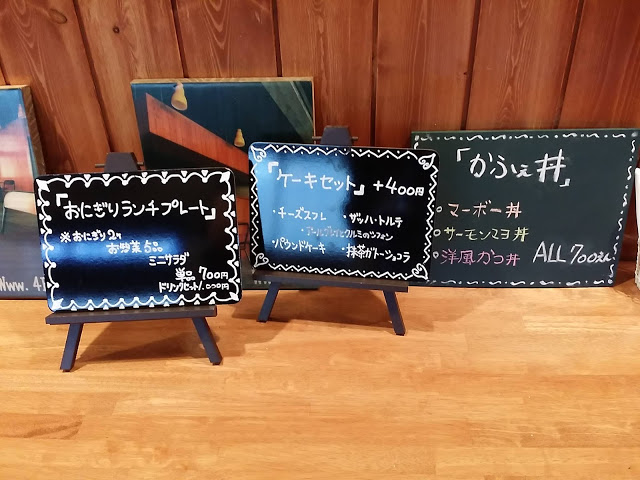 「おにぎりランチプレート」
※おにぎり2ケ
お惣菜5品
ミニサラダ
単品 700円
ドリンクセット1,000円
「ケーキセット」 +400円
・チーズスフレ ・ザッハトルテ
・アールグレイとクルミのシフォン
・パウンドケーキ ・抹茶ガトーショコラ
「かふぇ丼」
・マーボー丼
・サーモンマヨ丼
・洋風かつ丼 ALL 700えん
www. 41